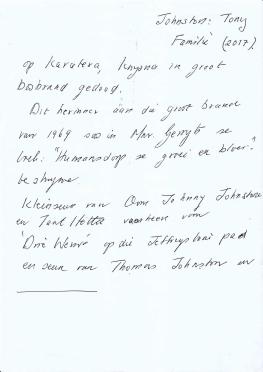 Johnston: Tony
Familie (2017)
op Karatera, Knysna in groot
bosbrand gedood.
Dit herinner aan die groot brande
van 1969 soos in Mnr. se
boek: "Humansdorp se groei en bloei"
beskrywe
Kleinseun van Oom Johnny Johnston
en Tant Hettie van
Drie Wenné op die Jeffreysbaai pad
en seun van Thomas Johnston en